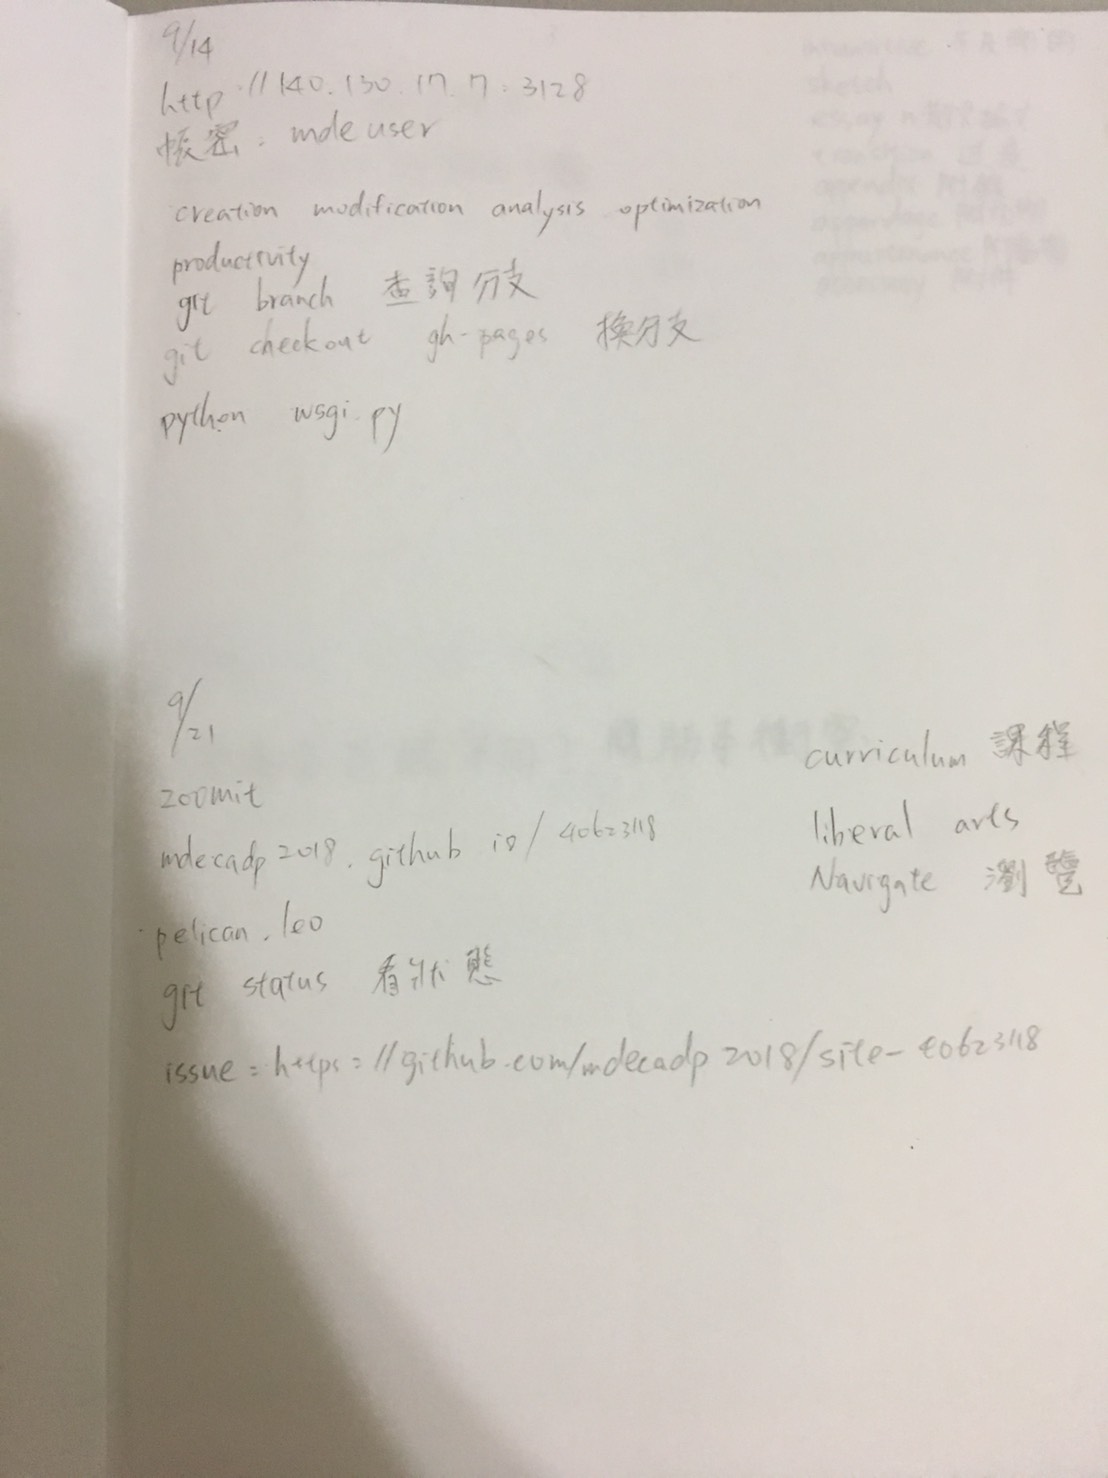 9/14
http://140.130.17.7:3128
帳密: mdeuser
creation modification analysis optimization
productivity
git branch 查詢分支
git checkout gh-pages 換分支
python wsgi.py
9/21
zoomit
mdecadp2018.github io/40623118
pelican.leo
git status 看狀態
issue = https=//github.com/mdecadp2018/site-40623118
curriculum 課程
liberal arts
Navigate 瀏覽
sketch